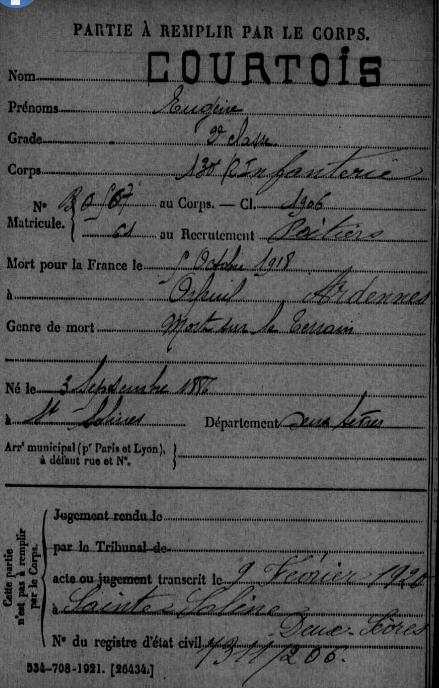 PARTIE À REMPLIR PAR LE CORPS.
Nom COURTOIS
Prénoms Eugène
Grade 2e classe
Corps 130 R Infanterie
N° Matricule. au Corps. — Cl. 1906
61 au Recrutement Poitiers
Mort pour la France le Octobre 1918
à Orfeuil Ardennes
Genre de mort Mort sur le terrain
Né le 3 Septembre
à St Deux Sèvres Département
Arrt municipal (pr Paris et Lyon), à défaut rue et N°.
Cette partie n'est pas à remplir par le Corps.
Jugement rendu le
par le Tribunal de
acte ou jugement transcrit le 9 Février 1920
à Sainte Soline Deux-Sèvres
N° du registre d'état civil
534-708-1921. [26434.]